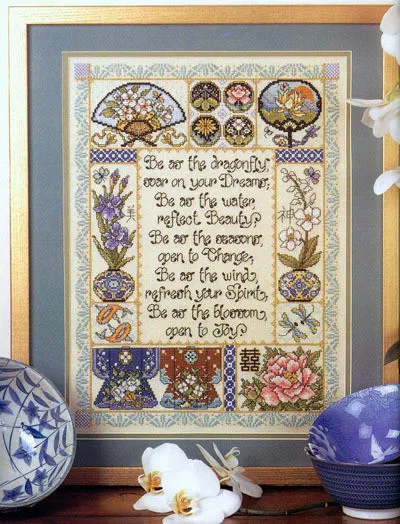 Be as the dragonfly,
soar on your Dreams;
Be as the water,
reflect Beauty;
Be as the seasons,
open to Change;
Be as the wind,
refresh your Spirit,
Be as the blossom,
open to Joy
美
神
囍